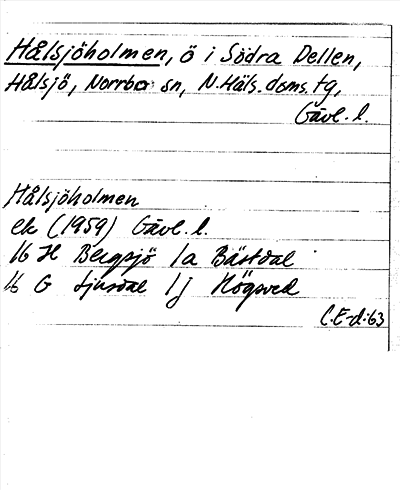 Hålsjöholmen, ö i Södra Dellen,
Hålsjö, Norrbo sn, N. Häls. doms. tg,
Gävl. l.
Hålsjöholmen
ek (1959) Gävl. l.
16 H Bergsjö 1a Bästdal
16 G Ljusdal 1j Högsved
C.E-d:63